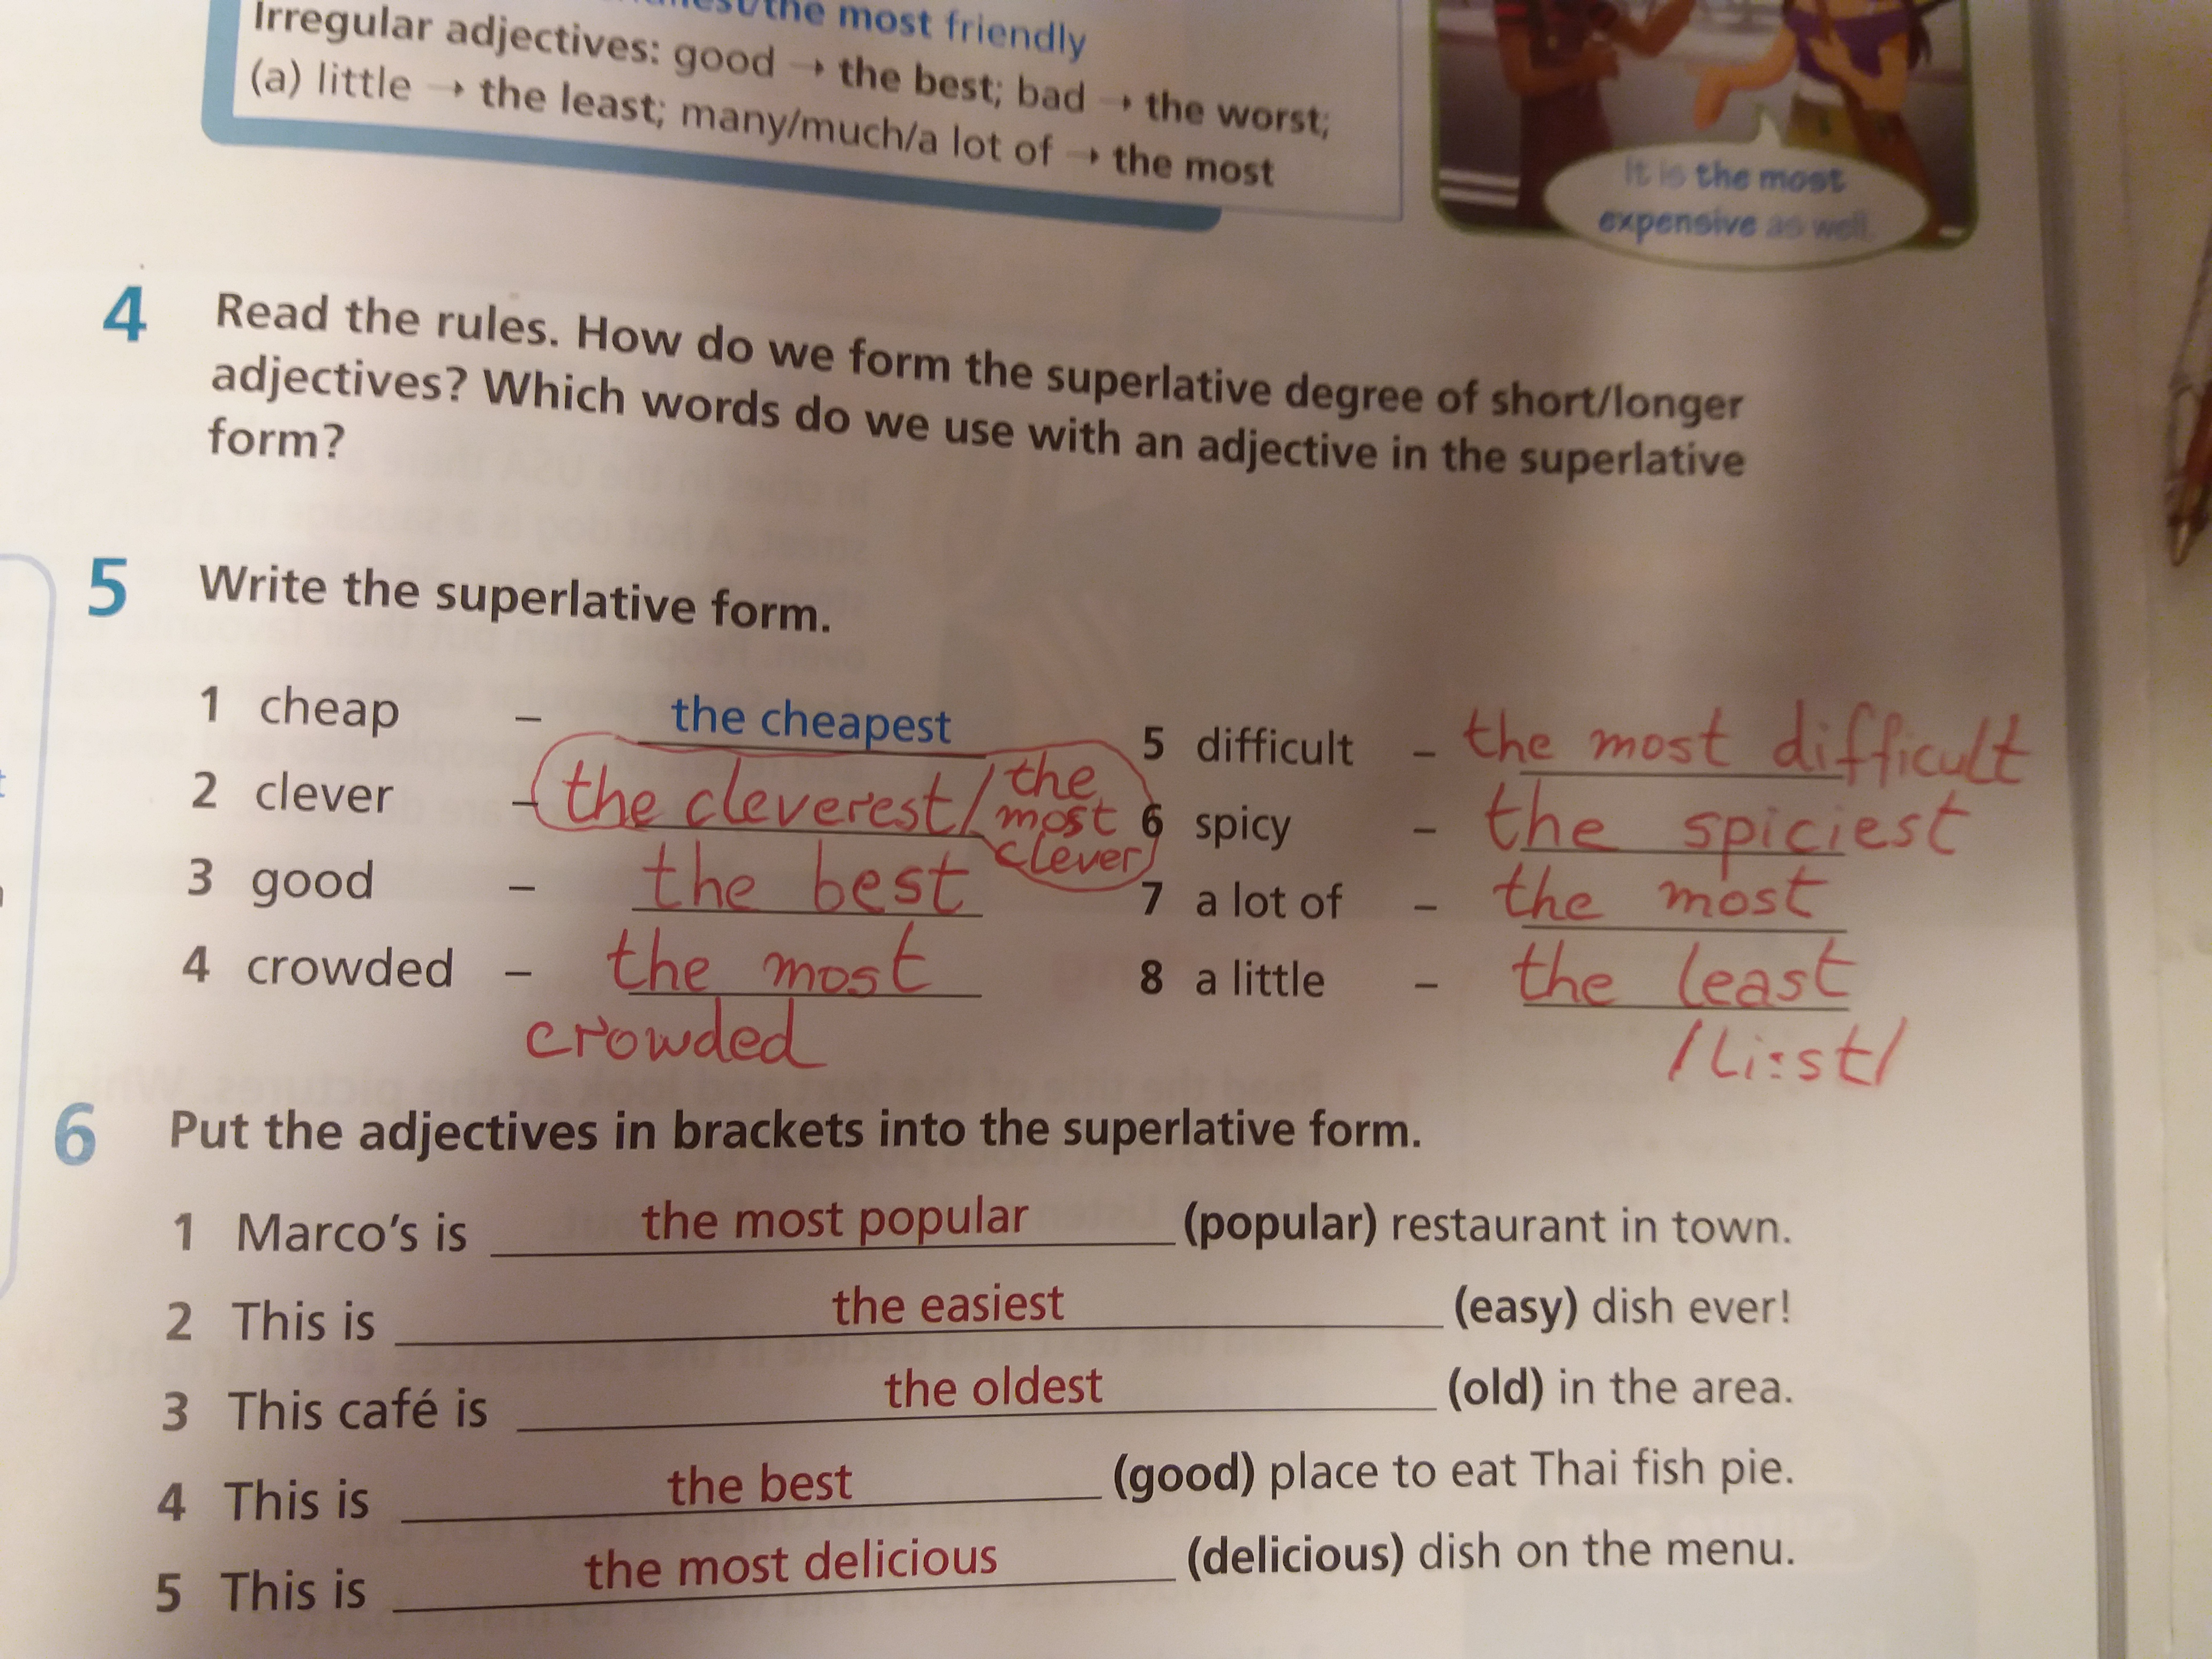 the most friendly
Irregular adjectives: good → the best; bad → the worst;
(a) little → the least; many/much/a lot of → the most
It is the most
expensive as well.
4 Read the rules. How do we form the superlative degree of short/longer
adjectives? Which words do we use with an adjective in the superlative
form?
5 Write the superlative form.
1 cheap – the cheapest
2 clever – the cleverest/the most clever
3 good – the best
4 crowded – the most
crowded
5 difficult – the most difficult
6 spicy – the spiciest
7 a lot of – the most
8 a little – the least
/li:st/
6 Put the adjectives in brackets into the superlative form.
1 Marco's is the most popular (popular) restaurant in town.
2 This is the easiest (easy) dish ever!
3 This café is the oldest (old) in the area.
4 This is the best (good) place to eat Thai fish pie.
5 This is the most delicious (delicious) dish on the menu.